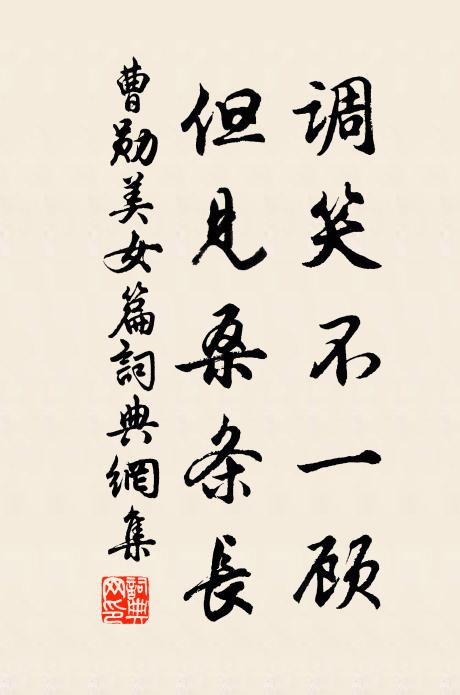 调笑不一顾
但见桑条长
曹勋美女篇詞典網集
詞典网印